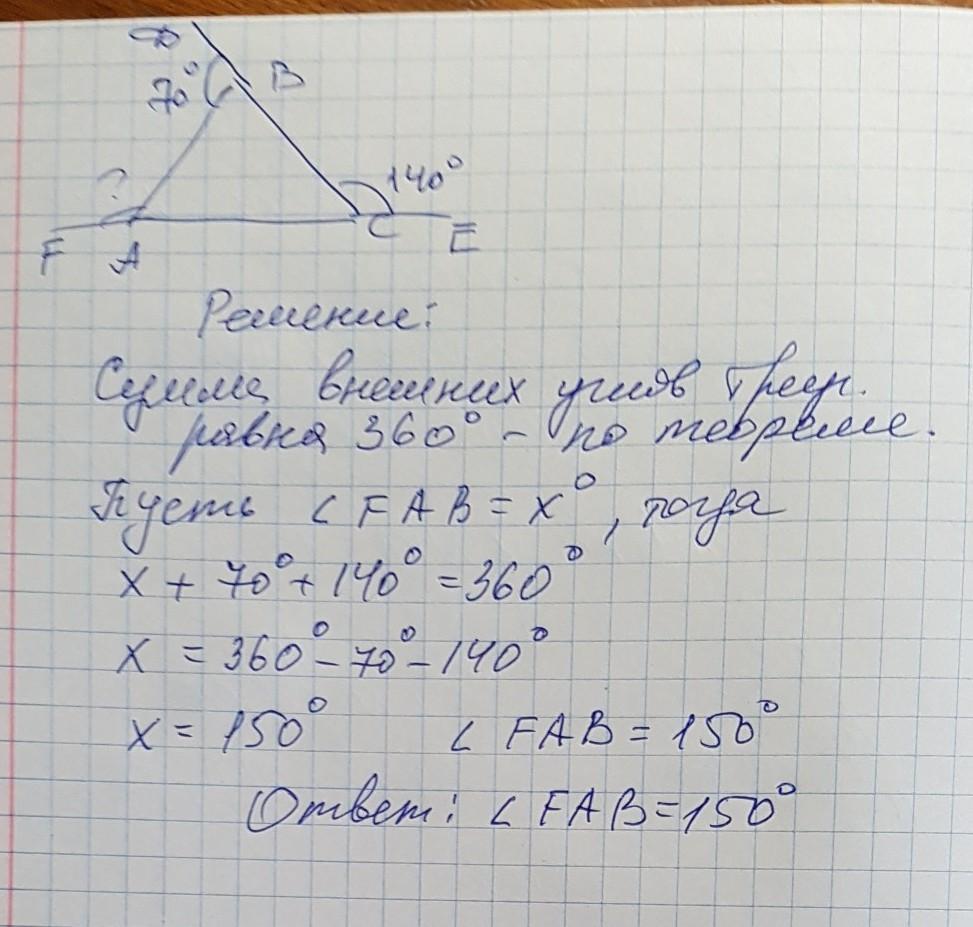 D
70° B
? 140°
F A C E
Решение:
Сумма внешних углов треуг.
равна 360° - по теореме.
Пусть ∠FAB = x°, тогда
x + 70° + 140° = 360°
x = 360° - 70° - 140°
x = 150° ∠FAB = 150°
Ответ: ∠FAB = 150°